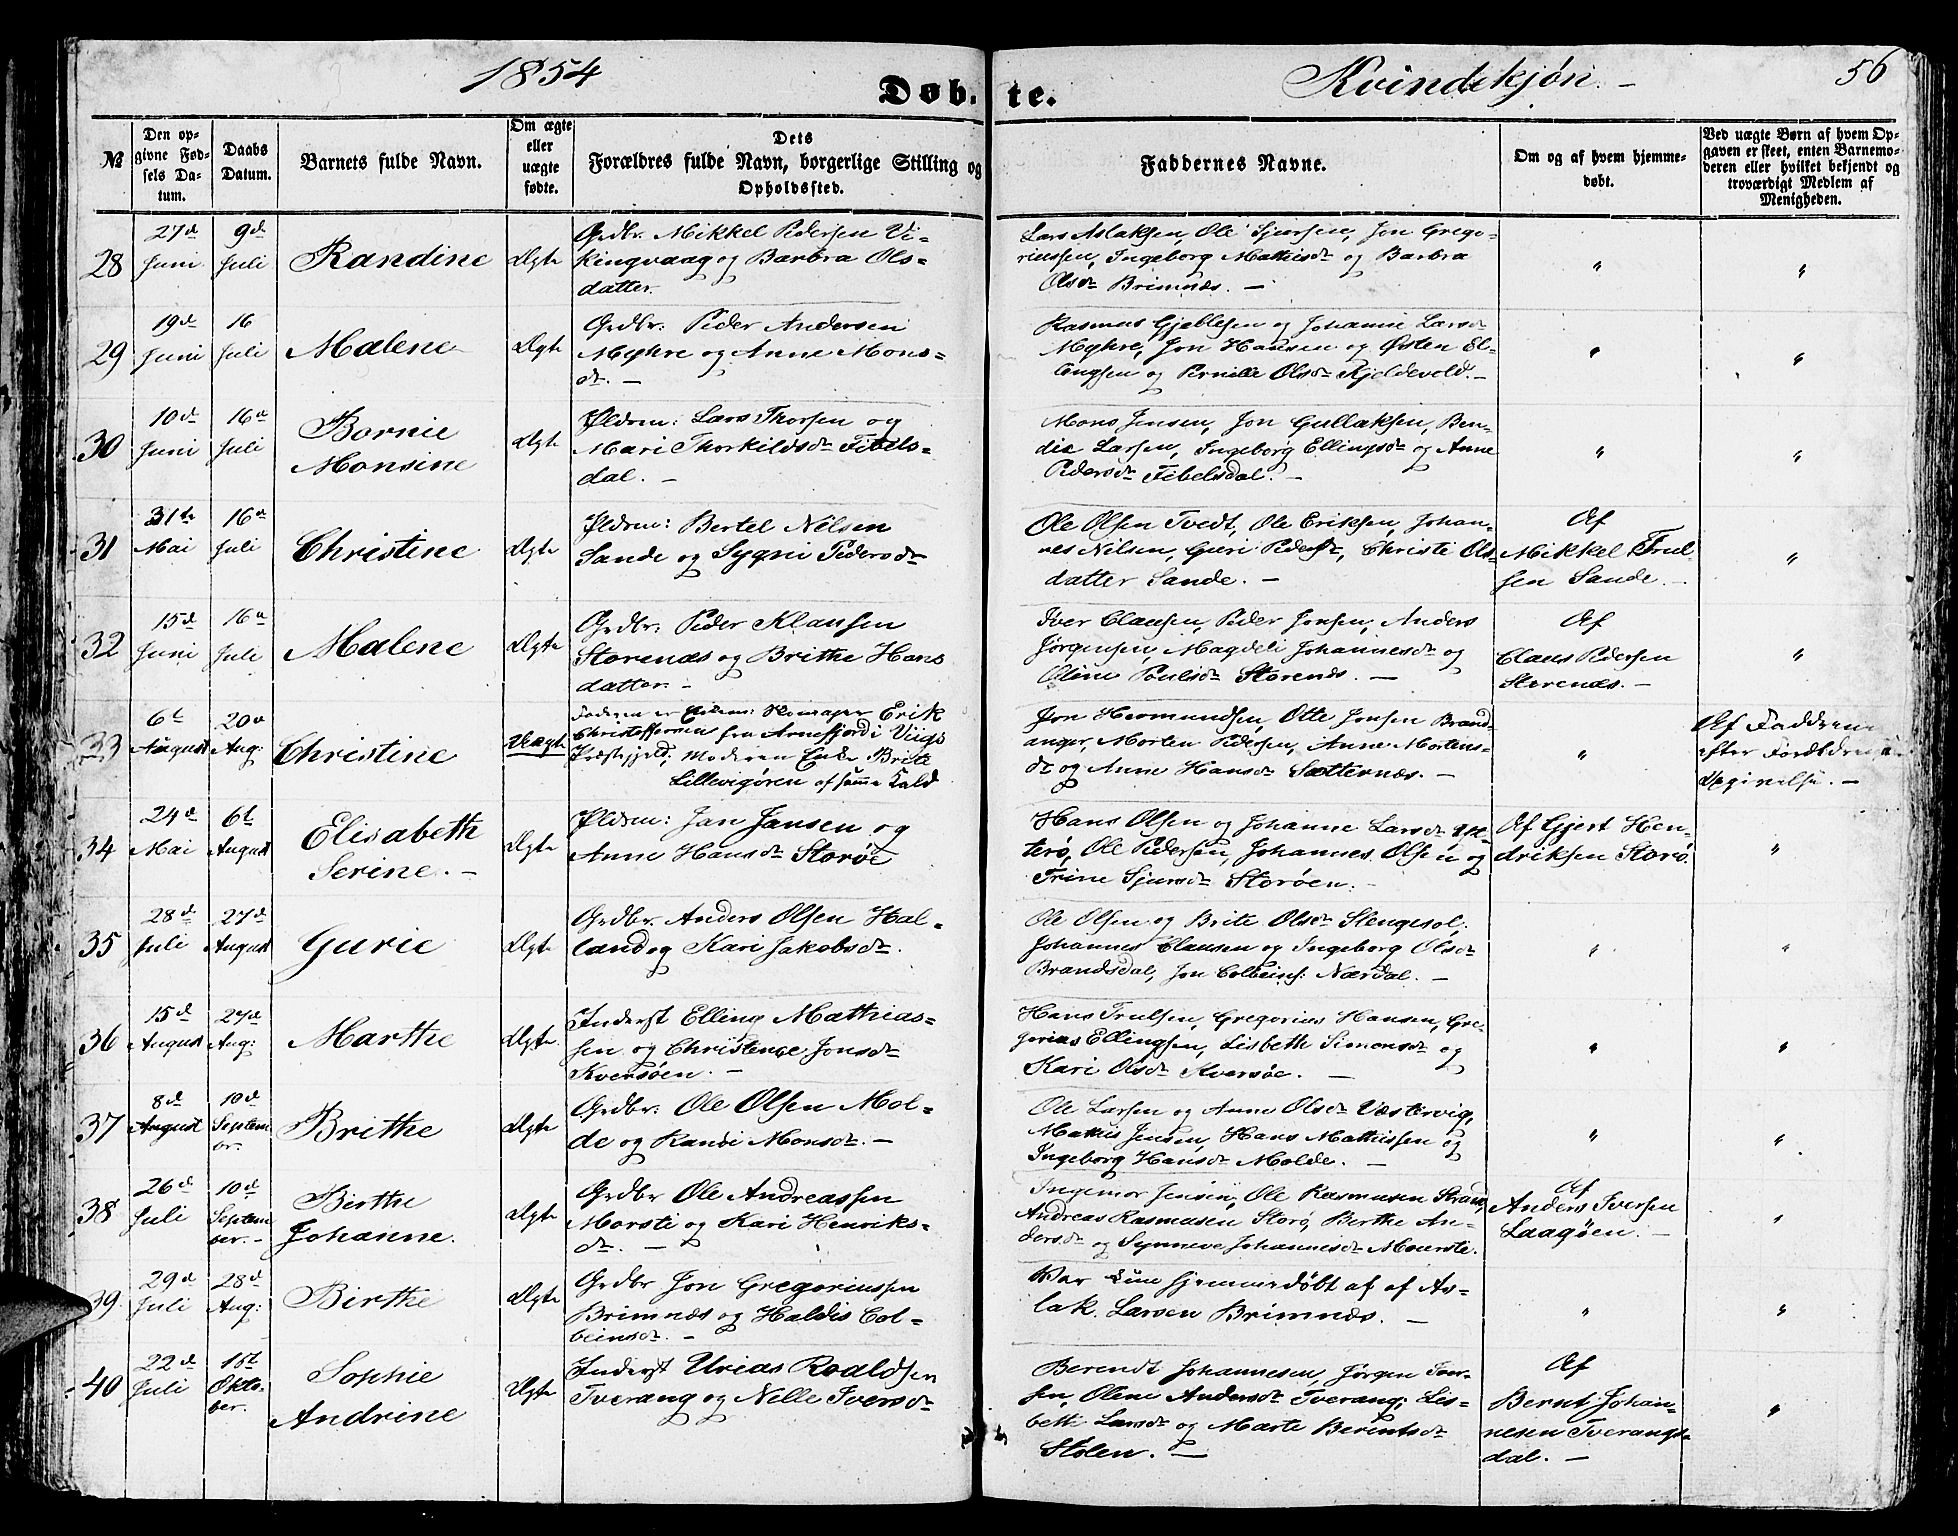 1854
Døb. te.
Kvindekjøn. –
56
№
Den op-
givne Fød-
sels Da-
tum.
Daabs
Datum.
Barnets fulde Navn.
Om ægte
eller
uægte
fødte.
Dets
Forældres fulde Navn, borgerlige Stilling og
Opholdssted.
Faddernes Navne.
Om og af hvem hjemme-
døbt.
Ved uægte Børn af hvem Op-
gaven er skeet, enten Barnemo-
deren eller hvilket bekjendt og
troværdigt Medlem af
Menigheden.
28
27d
Juni
9d
Juli
Randine
Ægte
Grdbr. Mikkel Pedersen Vi-
kingvaag og Barbra Ols-
datter.
Lars Aslaksen, Ole Sjursen, Jon Grego-
riussen, Ingeborg Mathisdr og Barbra
Olsdr Brimnæs. –
"
"
29
19d
Juni
16
Juli
Malene
Ægte
Grdbr: Peder Andersen
Myhre og Anne Mons-
dr. –
Rasmus Gjeblesen og Johanne Larsdr
Myhre, Jon Hansen og Østen El-
lingsen og Pernille Olsdr Kjeldevold. –
"
"
30
10d
Juni
16d
Juli
Bornie
Monsine
Ægte
Pldsm: Lars Thorsen og
Mari Thorkildsdr Fibels-
dal. –
Mons Jensen, Jon Gullaksen, Ben-
die Larsen, Ingeborg Ellingsdr og Anne
Pedersdr Fibelsdal. –
"
"
31
31te
Mai
16d
Juli
Christine
Ægte
Pldsm: Bertel Nilsen
Sande og Sygni Pedersdr
Ole Olsen Tvedt, Ole Eriksen, Johan-
nes Nilsen, Guri Pedersdr, Christi Ols-
datter Sande. –
Af
Mikkel Trul-
sen Sande. –
"
32
15d
Juni
16d
Juli
Malene
Ægte
Grdbr: Peder Klausen
Storenæs og Brithe Hans
datter. –
Iver Clausen, Peder Jonsen, Anders
Jørgensen, Magdeli Johannesdr og
Oline Poulsdr Storenæs. –
Af
Claus Pedersen
Storenæs. –
"
33
6t
August
20d
Aug:
Christine
Uægte
Faderen er Erik
Christoffersen fra Arnefjord i Viigs
Præstegjeld; Moderen Enke Brite
Lillevigøren af samme Kald
Jon Hermundsen, Otte Jonsen Brand-
anger, Morten Pedersen, Anne Mortens-
dr og Anne Hansdr Sætternæs. –
"
Af Faddrene
efter Forældrenes
Opgivelse. –
34
24d
Mai
6t
August
Elisabeth
Serine. –
Ægte
Pldsm: Jan Jansen og
Anne Hansdr Storøe
Hans Olsen og Johanne Larsdr Yt-
terø, Ole Pedersen, Johannes Olsen og
Trine Sjursdr Storøen. –
Af Gjert Hen-
driksen Storø.
"
35
28d
Juli
27d
August
Gurie
Ægte
Grdbr. Anders Olsen Hal-
land og Kari Jakobsdr.
Ole Olsen og Brite Olsdr Slengesol,
Johannes Clausen og Ingeborg Olsdr
Brandsdal, Jon Colbeins: Nærdal. –
"
"
36
15d
August
27d
Aug:
Marthe
Ægte
Inderst Elling Mathias-
sen og Christence Jonsdr
Kversøen. –
Hans Trulsen, Gregorius Hansen, Gre-
gorius Ellingsen, Lisbeth Simonsdr og
Kari Olsdr Kversøe. –
"
"
37
8d
August
10d
Septem
ber.
Brithe
Ægte
Grdbr: Ole Olsen Mol-
de og Randi Monsdr. –
Ole Larsen og Anne Olsdr Væstervig,
Mathis Jensen, Hans Mathissen og
Ingeborg Hansdr Molde. –
"
"
38
26d
Juli
10d
Septem
ber. –
Birthe
Johanne.
Ægte
Grdbr Ole Andreassen
Morsti og Kari Henriks-
dr. –
Ingemor Jensdr, Ole Rasmusen Strand,
Andreas Rasmusen Storø, Berthe An-
dersdr og Synneve Johannesdr Moerste.
Af
Anders Iversen
Laagøen. –
"
39
29d
Juli
28d
Aug:
Birthe
Ægte
Grdbr Jon Gregoriussen
Brimnæs og Haldis Col-
beinsdr. –
Var kun hjemmedøbt af af As-
lak Larsen Brimnæs. –
"
"
40
22d
Juli
1st
Okto-
ber.
Sophie
Andrine
Ægte
Inderst Urias Roaldsen
Tverang og Nelle Iversdr
Berendt Johannesen, Jørgen Iver-
sen, Oline Andersdr Tverang; Lis-
beth Larsdr og Marte Berentsdr
Stølen. –
Af
Bernt Johan-
nesen Tverangs-
dal. –
"